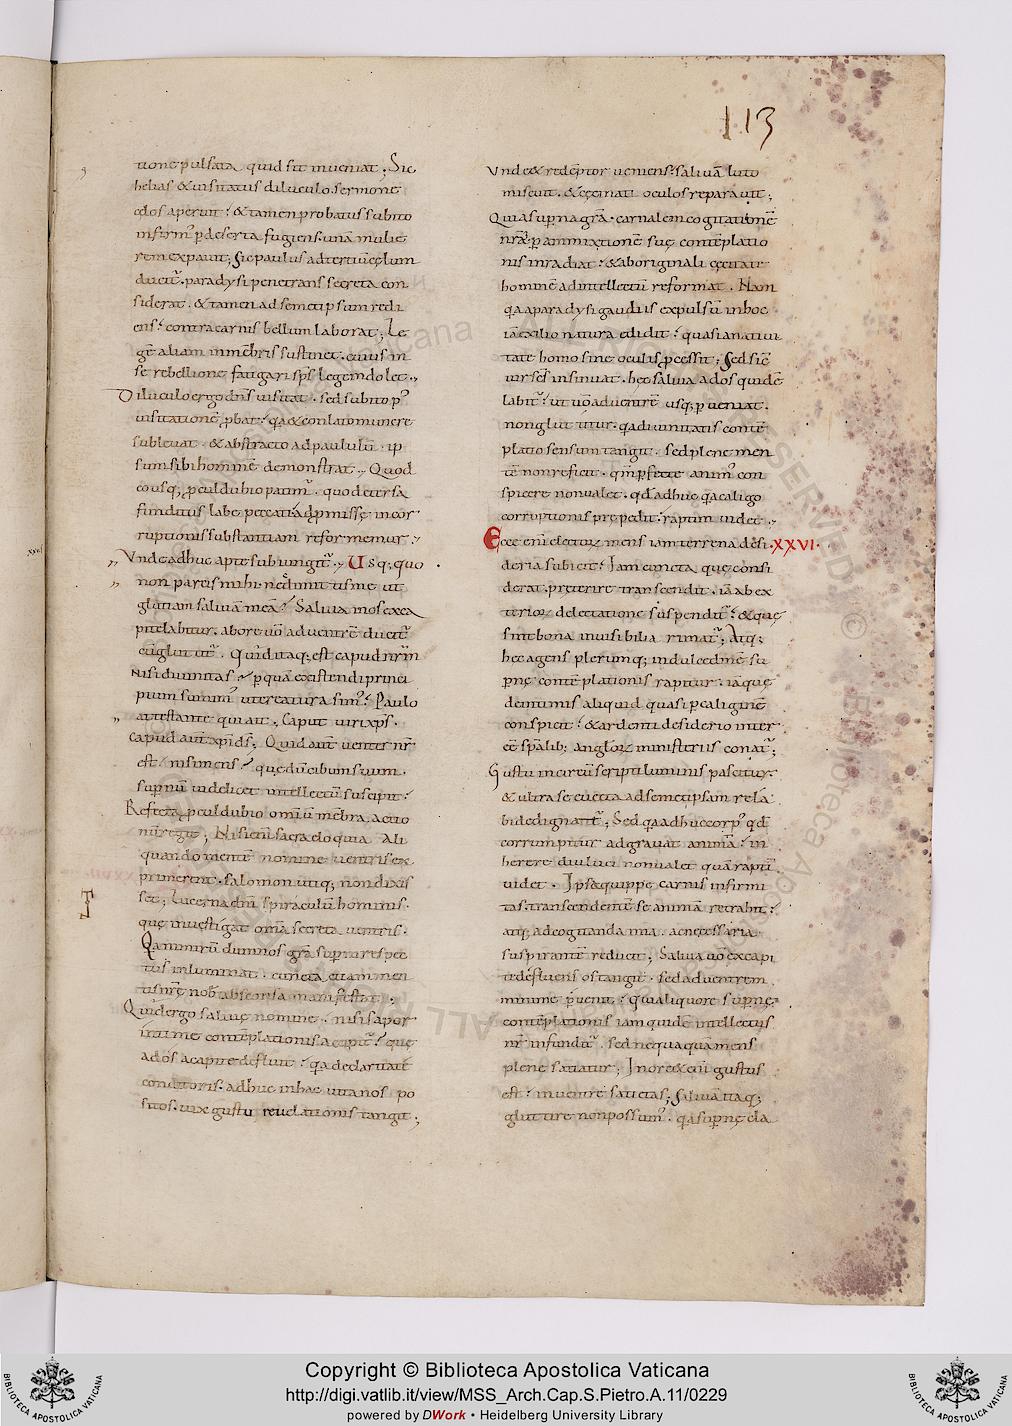 113
tione pulsata quid sit inveniat; Sic
helias & visitatus diluculo. sermone
& tamen probatus subito
deserta fugiens. unã mulie
rem expavit; Sic paulus ad tertiũ cęlum
paradysi penetrans secreta con
siderat. & tamen ad semetipsum redi
ens. contra carnis bellum laborat; Le
gẽ aliam in mẽbris sustinet. cuius in
se rebellione fatigari sp̃s legem dolet.,
Diluculo ergo dñs visitat. sed subito p'
visitationẽ
sublevat. & abstracto ad paululũ ip
sum sibi hominẽ demonstrat., Quod
quo detersa
funditus labe peccati
ruptionis substantiam reformemur.,
Unde adhuc apte subiungit., Usq; quo
non parcis mihi. nec dimittis me ut
glutiam salivã meã? Saliva in os ex ca
pite labitur. ab ore vo ad ventrẽ
Quid itaq; est capud nr̃m
nisi divinitas. p quã existendi princi
pium sumim' ut creatura sim'? Paulo
attestante qui ait. Caput viri xp̃s.
capud aut xp̃i d̃s; Quid aut venter nr̃
est nisi mens? quę dũ cibum suum.
supnũ videlicet intellectũ suscipit.
Refecta omniũ mẽbra actio
nũ regit; Nisi eni sacra eloquia ali
quando mentẽ nomine ventris ex
primerent. salomon utiq; non dixis
set; Lucerna dñi spiraculũ hominis.
quę investigat omia secreta ventris.
supni respec
tus inluminat. cuncta etiam men
tis nr̃ę nob absconsa manifestat;
Quid ergo salivę nomine. nisi sapor
intimę contẽplationis accipit? quę
ad os a capite defluit. qa de claritate
conditoris. adhuc in hac vita nos po
sitos. vix gustu revelationis tangit;
Unde & redẽptor veniens. salivã luto
miscuit. & cęci nati oculos reparavit;
Quia supna gr̃a. carnalem cogitationẽ
nr̃ã p ammixtionẽ suę contẽplatio
nis inradiat. & ab originali cęcitate
hominẽ ad intellectũ reformat. Nam
qa a paradysi gaudiis expulsũ in hoc
iã exilio natura edidit. quasi a nativi
tate homo sine oculis pcessit; Sed sic
vir scs̃ insinuat. hec saliva ad os quidẽ
labit. ut vo ad ventrẽ usq; pveniat.
non gluttitur. qa divinitatis contẽ
platio sensum tangit. sed plene men
tẽ non reficit. animus con
spicere non valet. qd adhuc caligo
corruptionis prępedit. raptim videt.,
XXVI.
Ecce eni electoꝝ mens iam terrena desi
deria subicit. Iam cuncta quę consi
derat. preterire transcendit. iã ab ex
terioꝝ delectatione suspendit. & quę
sint bona invisibilia rimat; Atq;
hec agens plerumq; in dulcedinẽ su
pnę contẽplationis rapitur. iãquę
de intimis aliquid quasi p caliginẽ
conspicit. & ardenti desiderio inter
eẽ sp̃alib; angloꝝ ministeriis conat;
Gustu incircũscripti luminis pascitur.
& ultra se evecta ad semetipsam rela
bi dedignatr; Sed qa adhuc corp' qd
corrumpitur adgravat animã. in
herere diu luci non valet quã raptĩ
videt. Ipsa quippe carnis infirmi
tas. transcendentẽ se animã retrahit.
atq; ad cogitanda ima. ac necessaria
suspirantẽ reducit; Saliva vo ex capi
te defluens os tangit. sed ad ventrem
minime pvenit. supnę
contẽplationis iam quidẽ intellectus
nr̃ infundit. sed nequaquã mens
plene satiatur; In ore & eni gustus
est. in ventre satietas; Salivã itaq;
gluttire non possum'. qa supnę cla
Copyright © Biblioteca Apostolica Vaticana
http://digi.vatlib.it/view/MSS_Arch.Cap.S.Pietro.A.11/0229
powered by DWork • Heidelberg University Library